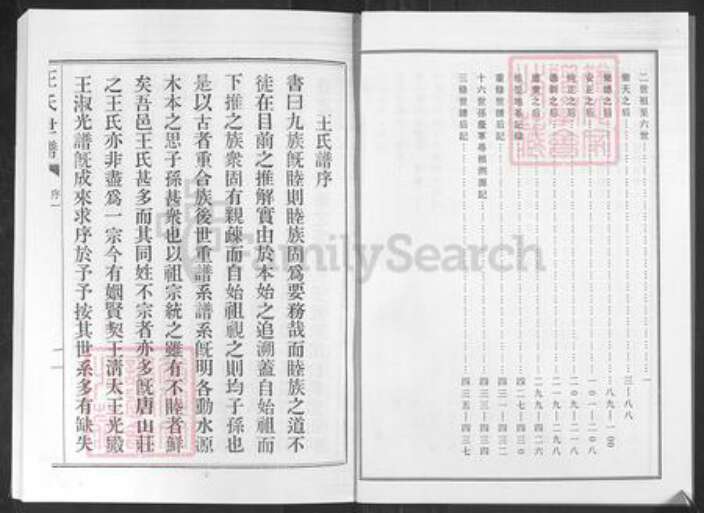 二世祖至六世……一
樂天之后……三—八八
之后……八九—一〇〇
安正之后……一〇一—二〇八
純正之后……二〇九—二一八
之后……二一九—二九八
之后……二九九—四二六
墓地……四二七—四三〇
重修世譜后記……四三一—四三二
十六世孫慶軍尋祖溯源記……四三三—四三四
三修世譜后記……四三五—四三七
王氏譜序
書曰九族旣睦則睦族固爲要務哉而睦族之道不
徒在目前之推解實由於本始之追溯蓋自始祖而
下推之族衆固有親疎而自始祖視之則均子孫也
是以古者重合族後世重譜系譜系旣明各動水源
木本之思子孫甚衆也以祖宗統之雖有不睦者鮮
矣吾邑王氏甚多而其同姓不宗者亦多旣唐山莊
之王氏亦非盡爲一宗今有姻賢契王清太王光殿
王淑光譜旣成來求序於予予按其世系多有缺失
王氏世譜
序一
一
FamilySearch